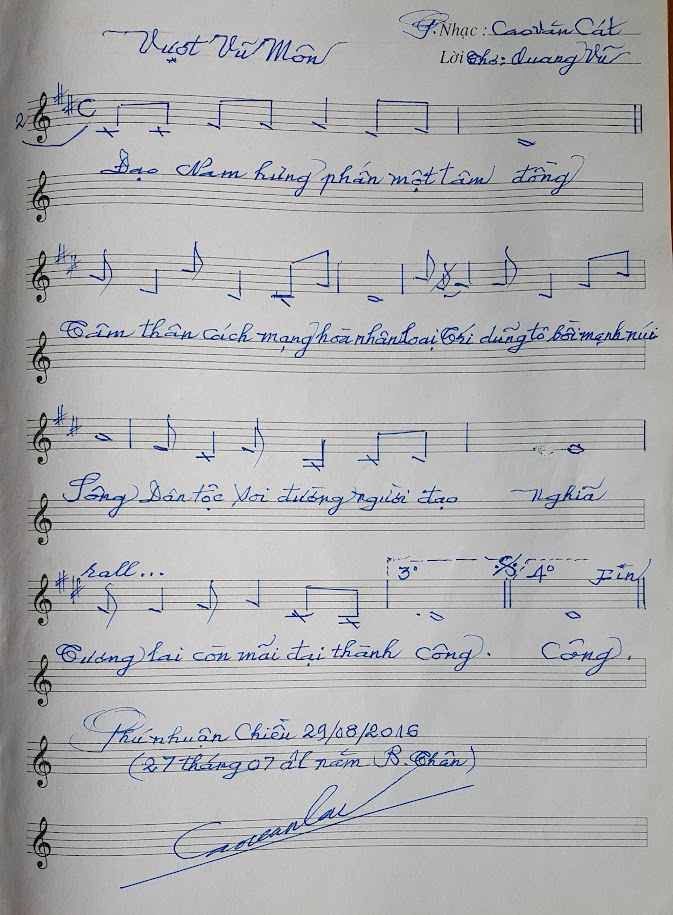 Vượt Vũ Môn
P. Nhạc : Cao Văn Cát
Lời Thơ: Quang Vũ
2
Đạo Nam hứng phấn một tâm đồng
Tâm thân cách mạng hoà nhân loại Chí dũng tô bồi mạnh núi
Sông Dân tộc Soi đường người đạo Nghĩa
rall...
3° 4° Fin
Tương lai còn mãi đại thành Công. Công.
Phú nhuận Chiều 29/08/2016
(27 tháng 07 âl năm B. Thân)